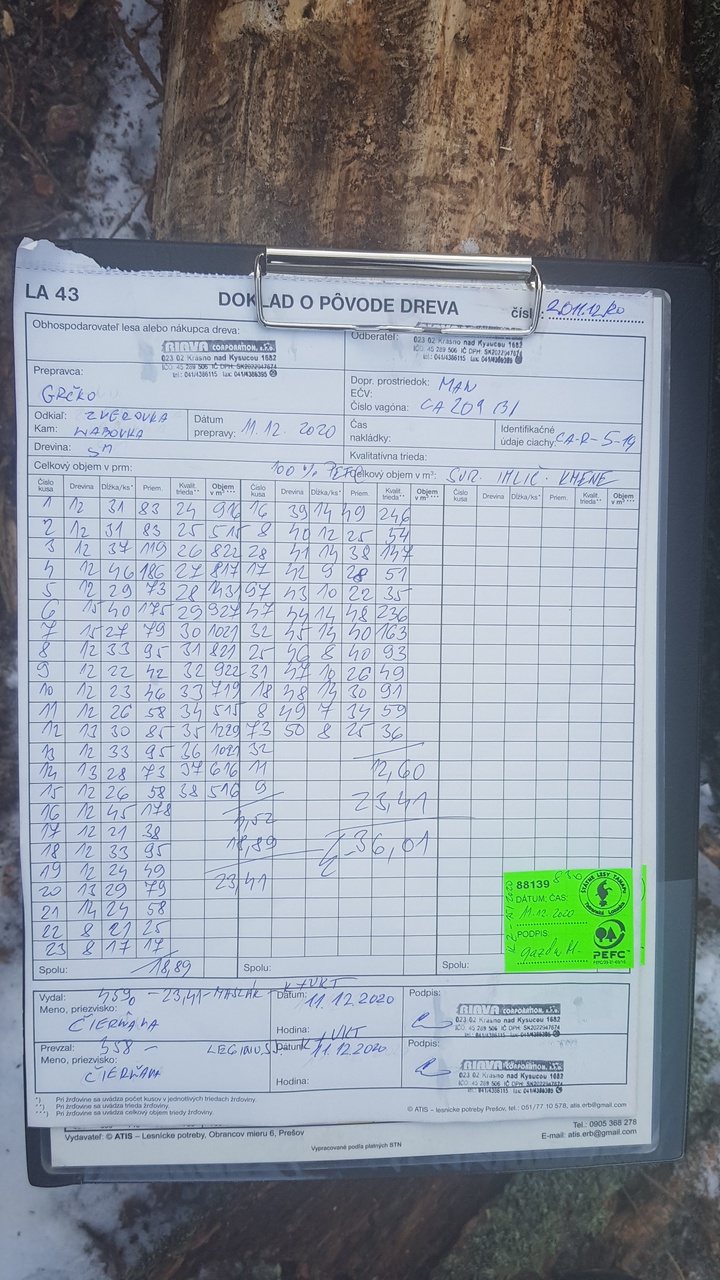 LA 43
DOKLAD O PÔVODE DREVA
číslo
Obhospodarovateľ lesa alebo nákupca dreva:
RIAVA CORPORATION, s.r.o.
023 02 Krásno nad Kysucou 1682
Odberateľ:
023 02 Krásno nad Kysucou 1682
Prepravca:
GRČKO
Dopr. prostriedok: MAN
EČV:
Číslo vagóna: CA 209 BI
Odkiaľ: ZVEROVKA
Kam:
Dátum
prepravy: 11.12. 2020
Čas
nakládky:
Identifikačné
údaje ciachy: CA-R-5-19
Drevina: SM
Kvalitatívna trieda:
Celkový objem v prm: 100 % PEFC
Celkový objem v m³: SUR. IHLIČ. KMENE
Číslo kusa Drevina Dĺžka/ks* Priem. Kvalit. trieda** Objem v m³*** Číslo kusa Drevina Dĺžka/ks* Priem. Kvalit. trieda** Objem v m³*** Číslo kusa Drevina Dĺžka/ks* Priem. Kvalit. trieda** Objem v m³***
1 12 31 83 24 9 16 16 39 14 49 246
2 12 31 83 25 5 15 8 40 12 25 54
3 12 37 119 26 8 22 28 41 14 38 147
4 12 46 186 27 8 17 17 42 9 28 51
5 12 29 73 28 14 31 97 43 10 22 35
6 15 40 175 29 9 27 47 44 14 48 236
7 15 27 79 30 10 21 32 45 14 40 163
8 12 33 95 31 8 21 25 46 8 40 93
9 12 22 42 32 9 22 31 47 10 26 49
10 12 23 46 33 7 19 18 48 14 30 91
11 12 26 58 34 5 15 8 49 7 34 59
12 13 30 85 35 12 29 73 50 8 25 36
13 12 33 95 36 10 21 32
14 13 28 73 37 6 16 11 12,60
15 12 26 58 38 5 16 9
16 12 45 178 4,52 23,41
17 12 21 38
18 12 33 95 18,89 36,01
19 12 24 49
20 13 29 79 23,41
21 14 24 58
22 8 21 25
23 8 17 17
Spolu: 18,89
Spolu:
Spolu:
88139
DÁTUM, ČAS:
11.12.2020
PODPIS:
ŠTÁTNE LESY TANAPU
PEFC
Vydal: 459 - 23,41 - MASLAK - KYVKT
Meno, priezvisko:
ČIERŇAVA
Dátum: 11.12.2020
Hodina:
Podpis:
RIAVA CORPORATION, s.r.o.
023 02 Krásno nad Kysucou 1682
Prevzal: 358 - LEGINUS KYVKT
Meno, priezvisko:
ČIERŇAVA
Dátum: 11.12.2020
Hodina:
Podpis:
RIAVA CORPORATION, s.r.o.
023 02 Krásno nad Kysucou 1682
*) Pri žrďovine sa uvádza počet kusov v jednotlivých triedach žrďoviny.
**) Pri žrďovine sa uvádza trieda žrďoviny.
***) Pri žrďovine sa uvádza celkový objem triedy žrďoviny.
© ATIS – lesnícke potreby Prešov, tel.: 051/77 10 578, atis.erb@gmail.com
Tel.: 0905 368 278
Vydavateľ: © ATIS – Lesnícke potreby, Obrancov mieru 6, Prešov
E-mail: atis.erb@gmail.com
Vypracované podľa platných STN